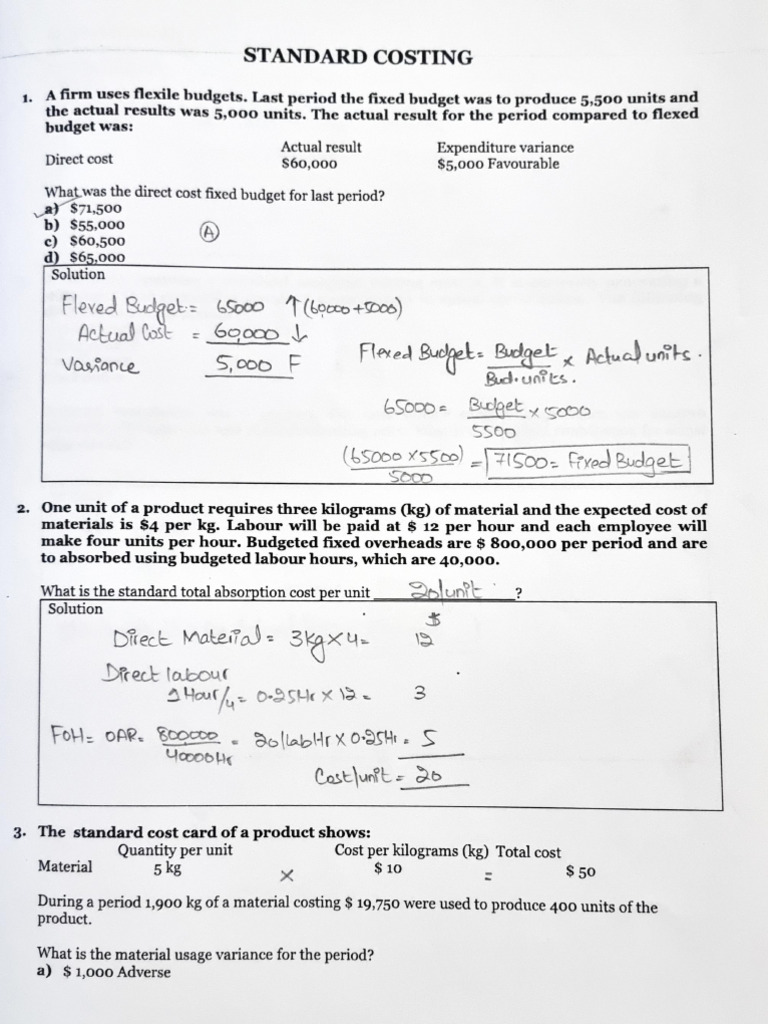 STANDARD COSTING
1. A firm uses flexile budgets. Last period the fixed budget was to produce 5,500 units and
the actual results was 5,000 units. The actual result for the period compared to flexed
budget was:
Actual result Expenditure variance
Direct cost $60,000 $5,000 Favourable
What was the direct cost fixed budget for last period?
a) $71,500
b) $55,000
c) $60,500
d) $65,000
A
Solution
Flexed Budget = 65000 ↑ (60000 + 5000)
Actual Cost = 60,000 ↓
Variance 5,000 F
Flexed Budget = Budget × Actual units.
Bud. units.
65000 = Budget × 5000
5500
(65000 × 5500) = 71500 = Fixed Budget
5000
2. One unit of a product requires three kilograms (kg) of material and the expected cost of
materials is $4 per kg. Labour will be paid at $ 12 per hour and each employee will
make four units per hour. Budgeted fixed overheads are $ 800,000 per period and are
to absorbed using budgeted labour hours, which are 40,000.
What is the standard total absorption cost per unit 20/unit ?
Solution
$
Direct Material = 3kg × 4 = 12
Direct labour
1 Hour/4 = 0.25Hr × 12 = 3
FOH = OAR = 800000 = 20/labHr × 0.25Hr = 5
40000Hr
Cost/unit = 20
3. The standard cost card of a product shows:
Quantity per unit Cost per kilograms (kg) Total cost
Material 5 kg × $ 10 = $ 50
During a period 1,900 kg of a material costing $ 19,750 were used to produce 400 units of the
product.
What is the material usage variance for the period?
a) $ 1,000 Adverse